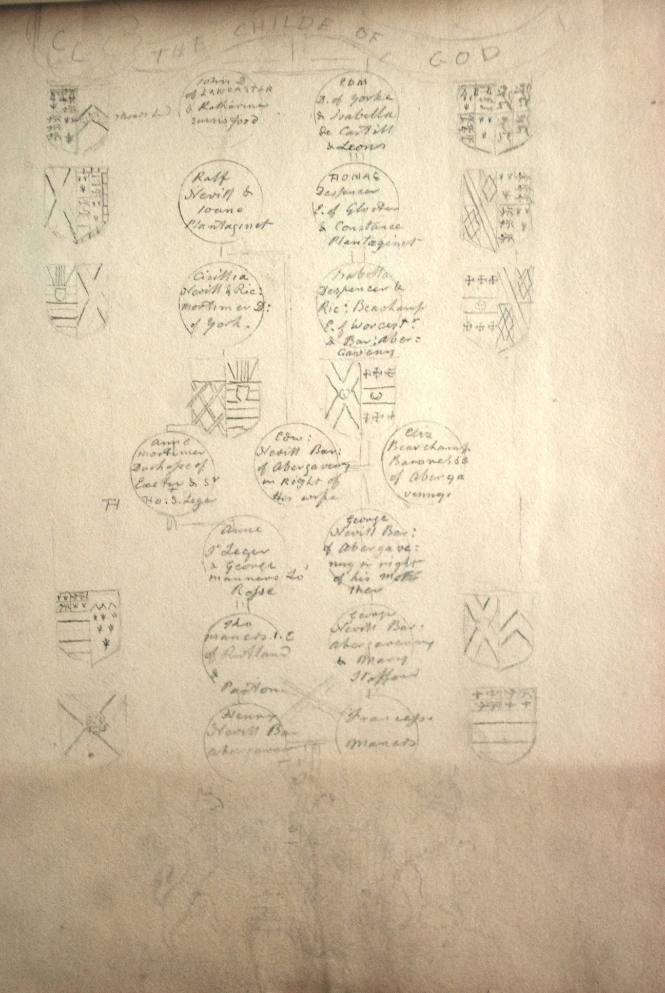 THE CHILDE OF GOD
John D.
of LANCASTER
& Katharine
EDM
D. of Yorke
& Isabella
de Castill
& Leons
Ralf
Nevill &
Ioane
Plantaginet
THOMAS
Despencer
E. of Gloster
& Constance
Plantaginet
Cicillia
Nevill & Ric:
mortimer D:
of York.
Isabella
Despencer &
Ric: Beachamp
E. of Worcestr
& Bar: Aber=
Gaveny
Anne
mortimer
Duchesse of
Exeter & Sr
Tho: S. Leger
Edw:
Nevill Bar:
of Abergaveny
in Right of
His wife
Eliz
Beauchamp
Baronesse
of Aberga
venny
Anne
St Leger
& George
manners Lo
Rosse
George
Nevill Bar:
of Abergave:
nny in right
of his Moth
ther
Tho
maners. 1. E
of Rutland
&
Paston
George
Nevill Bar:
Abergavenny
& Mary
Stafford
Henry
Nevill Bar
Abergaveny
Francesse
Maners